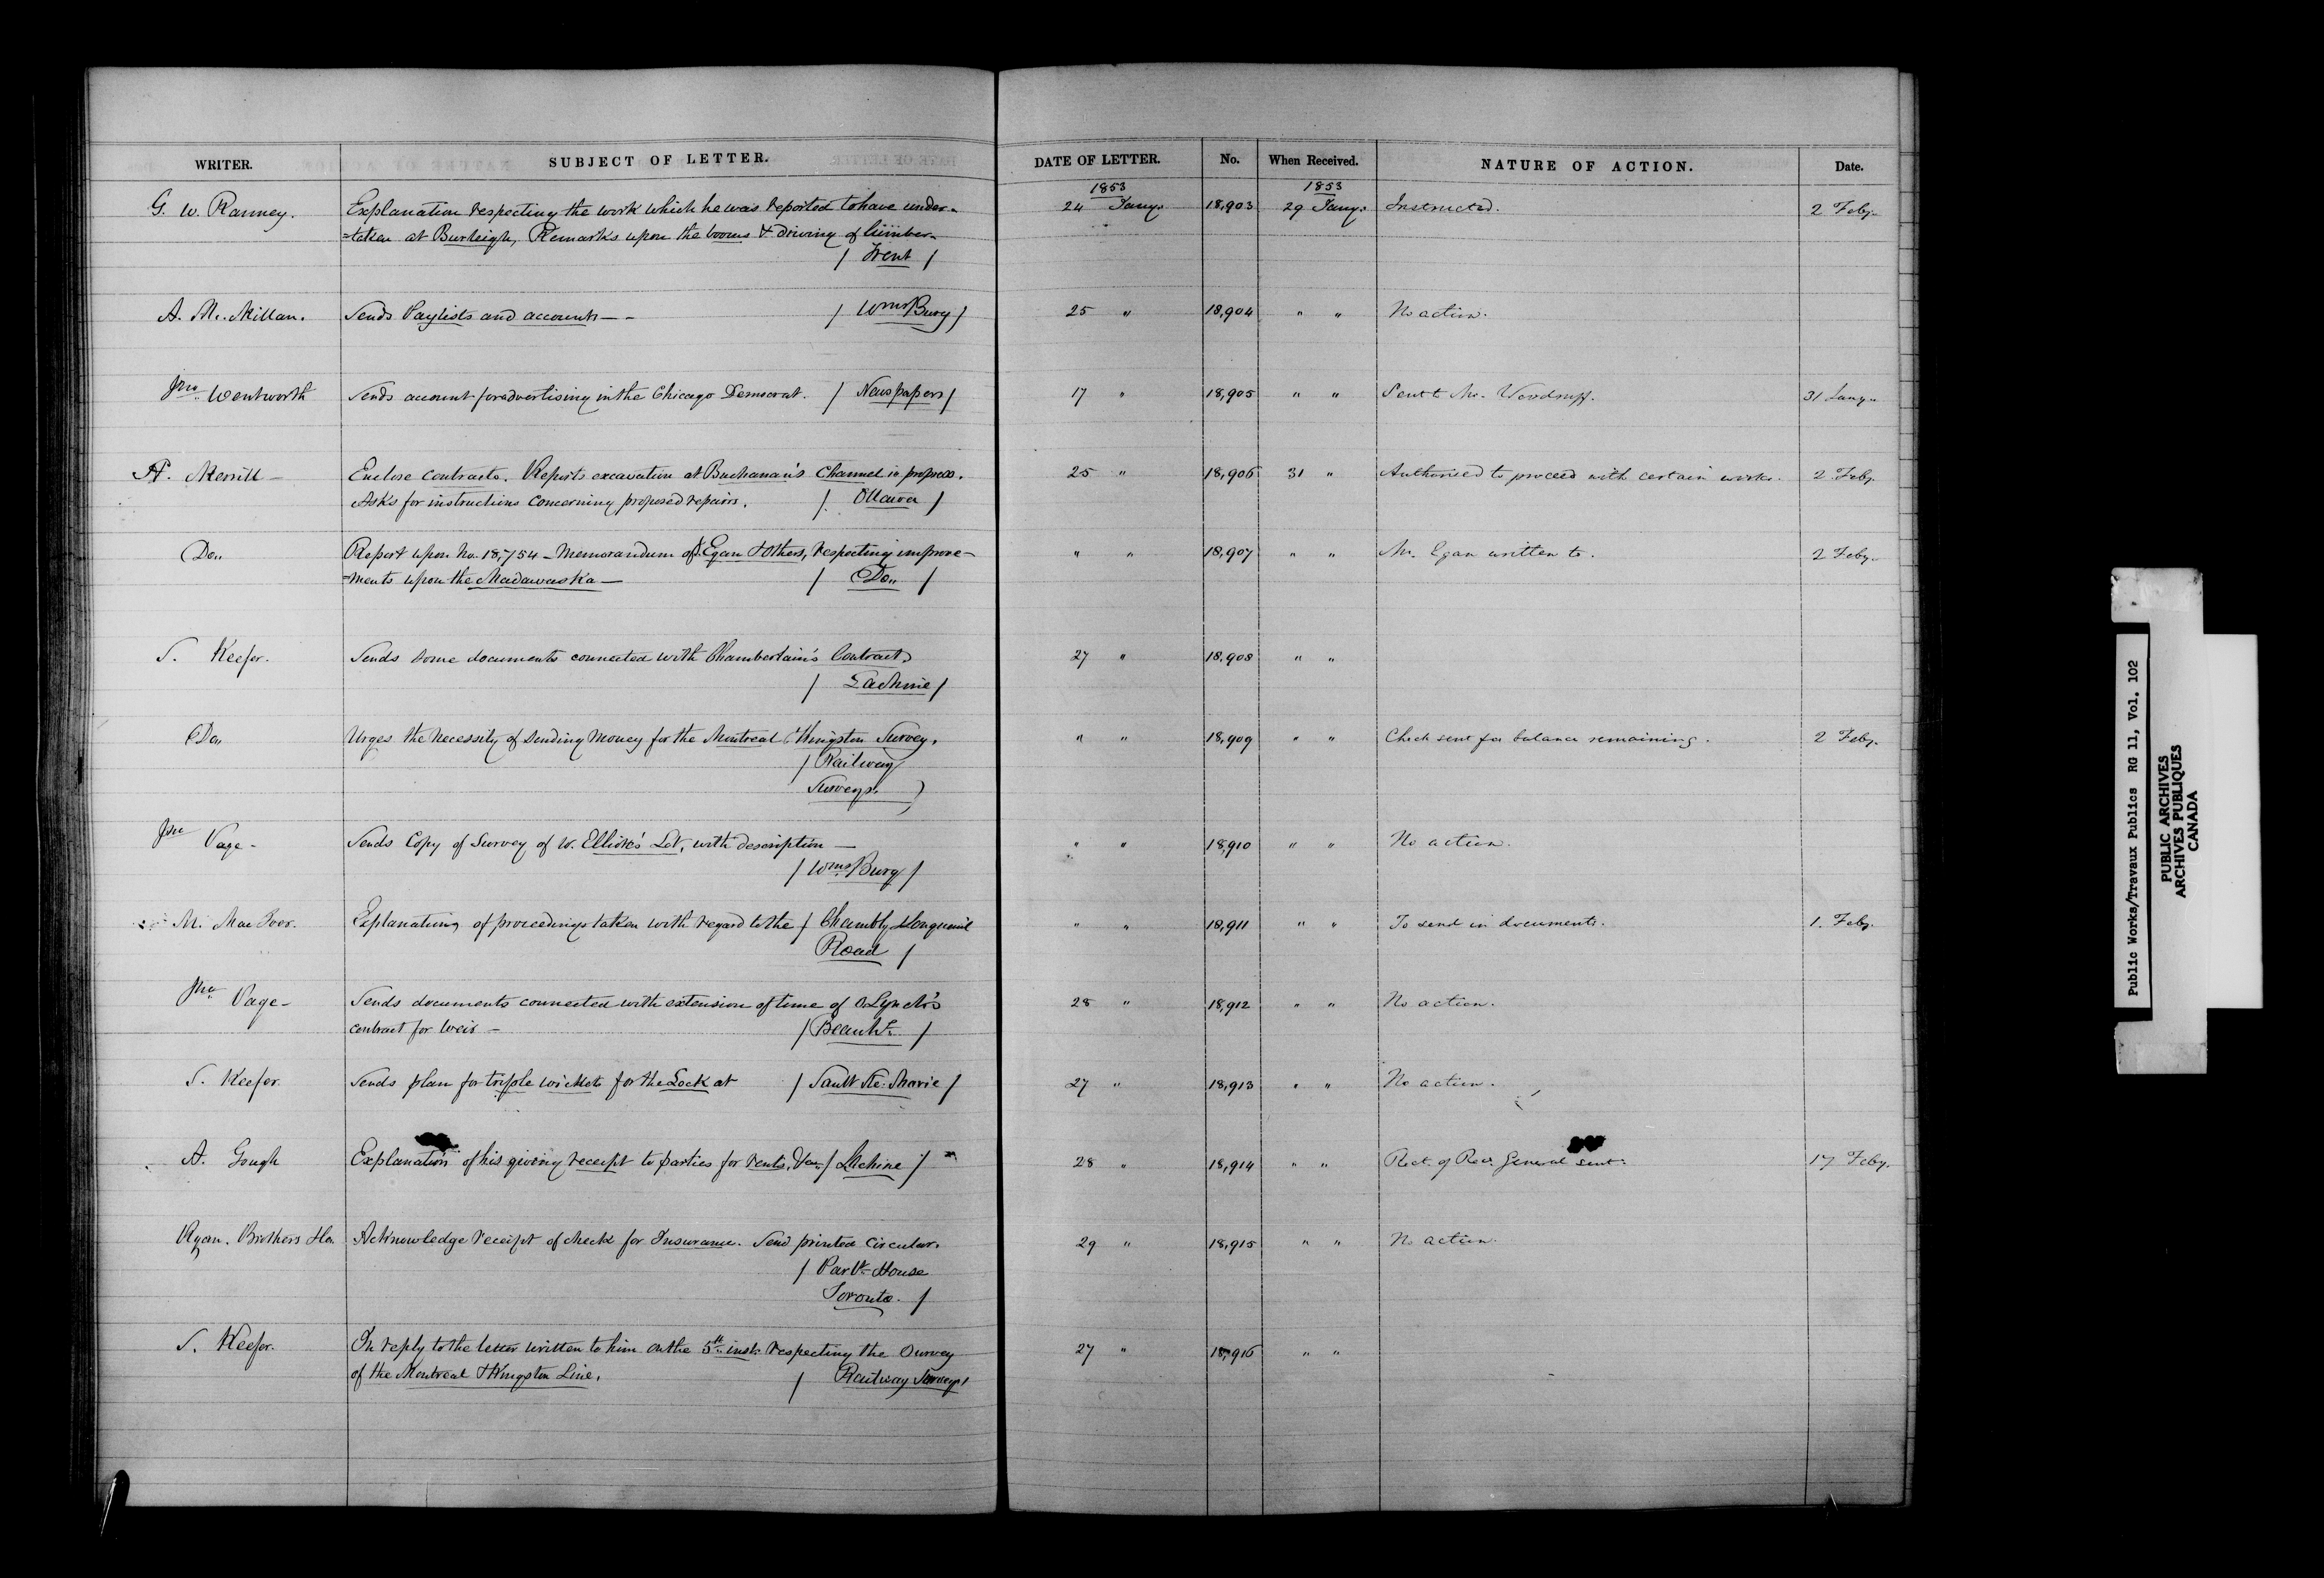 WRITER. SUBJECT OF LETTER. DATE OF LETTER. No. When Received. NATURE OF ACTION. Date.
1853 1853
G. W. Ranney. Explanation respecting the work which he was reported to have under- 24 Jany. 18,903 29 Jany. Instructed. 2 Feby.
=taken at Burleigh, Remarks upon the booms & driving of timber.
/ Trent /
A. McMillan. Sends Paylists and accounts — / Wms.Burg / 25 " 18,904 " " No action.
Jno. Wentworth Sends account for advertising in the Chicago Democrat. / Newspapers / 17 " 18,905 " " Sent to Mr. Woodruff. 31 Jany.
H. Merrill — Enclose Contracts. Reports excavation at Buchanan's Channel in progress. 25 " 18,906 31 " Authorised to proceed with certain works. 2 Feby.
Asks for instructions concerning proposed repairs. / Ottawa /
Do. Report upon No. 18,754 — Memorandum of J. Egan & Others, respecting improve- " " 18,907 " " Mr. Egan written to. 2 Feby.
=ments upon the Madawaska — / Do. /
S. Keefer. Sends some documents connected with Chamberlain's Contract. 27 " 18,908 " "
/ Lachine /
Do. Urges the necessity of sending money for the Montreal & Kingston Survey. " " 18,909 " " Check sent for balance remaining. 2 Feby.
/ Railway
Surveys. )
Jno. Page - Sends Copy of Survey of W. Elliott's Lot, with description — " " 18,910 " " No action.
/ Wms.Burg /
M. MacIver. Explanation, of proceedings taken with regard to the / Chambly Longueuil " " 18,911 " " To send in documents. 1. Feby.
Road /
Jno. Page - Sends documents connected with extension of time of O. Lynch's 28 " 18,912 " " No action.
contract for Weir — / Beauhs. /
S. Keefer. Sends plan for triple wickets for the Lock at / Sault Ste. Marie / 27 " 18,913 " " No action.
A. Gough Explanation of his giving receipt to parties for rents, &c. / Lachine / 28 " 18,914 " " Rect. of Recr. General sent. 17 Feby.
Ryan. Brothers &Co. Acknowledge receipt of check for Insurance. Send printed Circular. 29 " 18,915 " " No action.
/ Parlt. House
Toronto. /
S. Keefer. In reply to the letter written to him on the 5th. inst. respecting the Survey 27 " 18,916 " "
of the Montreal & Kingston Line. / Railway Surveys /
Public Works/Travaux Publics RG 11, Vol. 102
PUBLIC ARCHIVES
ARCHIVES PUBLIQUES
CANADA